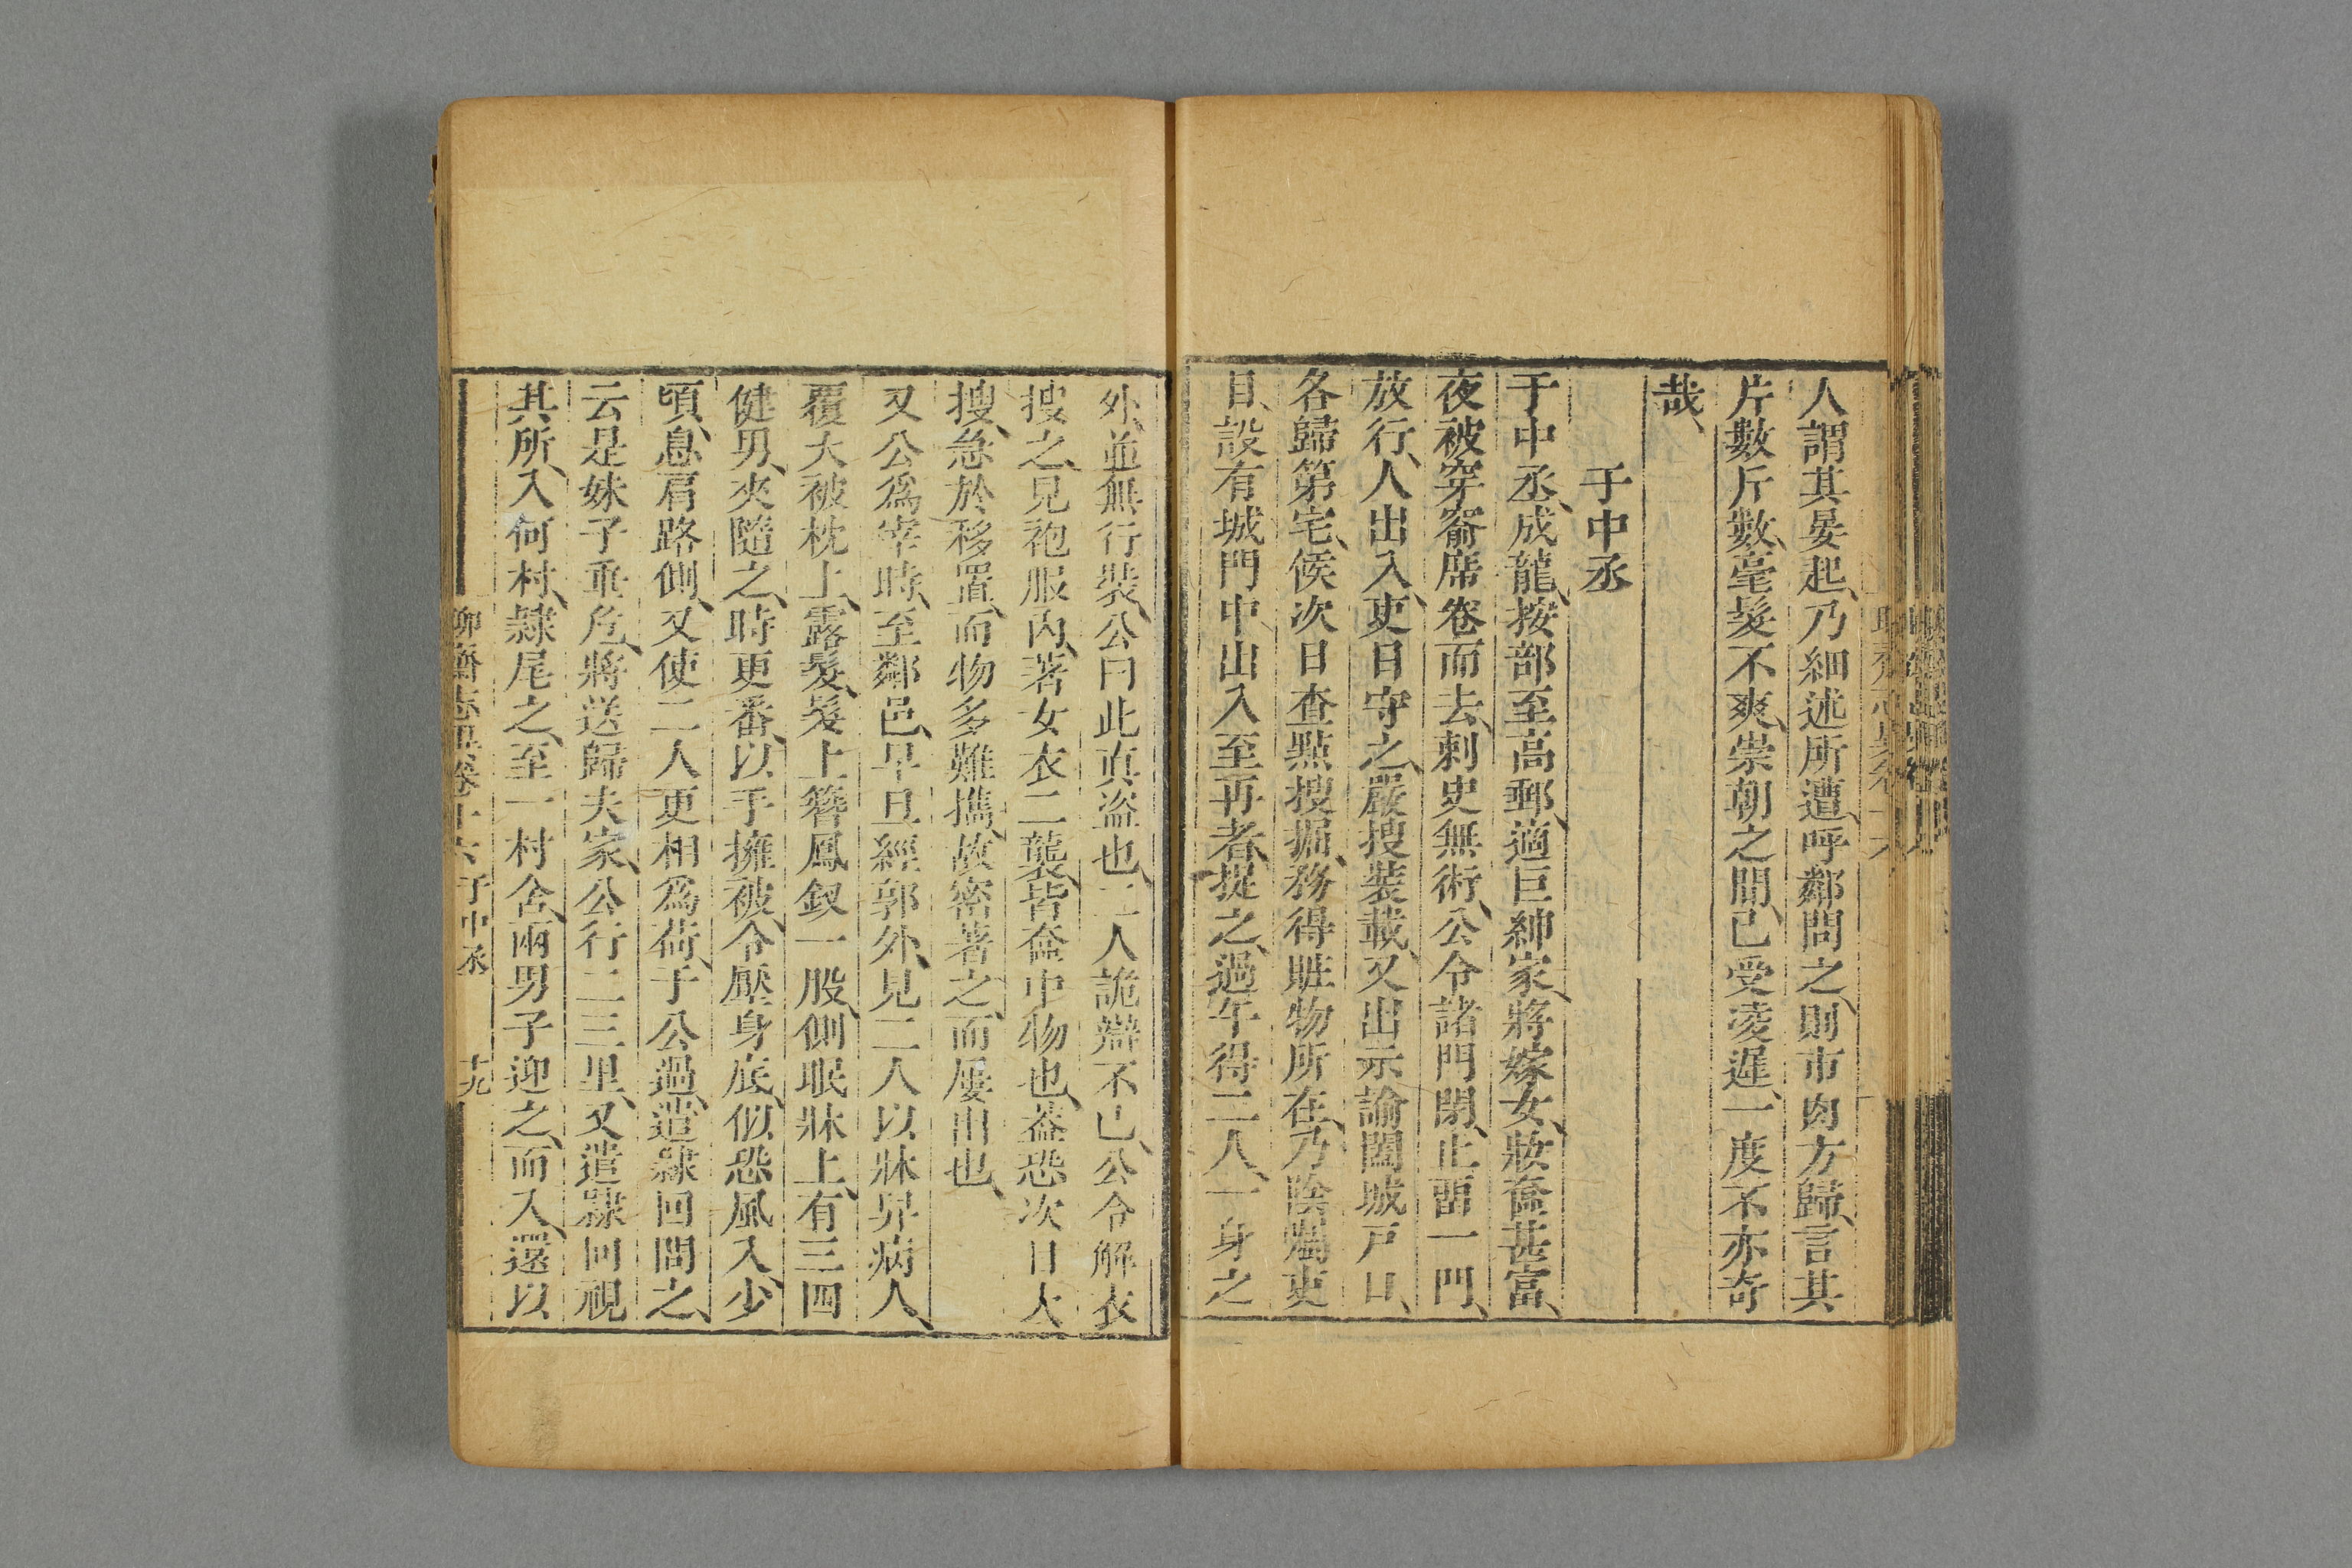 人謂其晏起、乃細述所遭、呼鄰問之、則市肉方歸、言其
片數斤數、毫髮不爽、崇朝之間、已受凌遲、一度不亦奇
哉、
于中丞
于中丞、成龍、按部至高郵、適巨紳家、將嫁女、妝奩甚富、
夜被穿窬席卷而去、刺史無術、公令諸門閉、止畱一門、
放行、人出入、吏目守之、嚴搜裝載、又出示諭闔城戶口、
各歸第宅、候次日查點搜掘、務得贓物所在、乃陰囑吏
目、設有城門中出入至再者、捉之、過午得二人、一身之
外、並無行裝、公曰此真盜也、二人詭辯不已、公令解衣
搜之、見袍服內、著女衣二襲、皆奩中物也、葢恐次日大
搜、急於移置、而物多難攜、故密著之、而屢出也、
又公爲宰時、至鄰邑、早旦經郭外、見二人以牀舁病人、
覆大被枕上、露髮、髮上簪鳳釵一股、側眠牀上、有三四
健男、夾隨之、時更番、以手擁被、令壓身底、似恐風入、少
頃、息肩路側、又使二人更相爲荷、于公過、遣隸回問之、
云是妹子垂危、將送歸夫家、公行二三里、又遣隸回視
其所、入何村、隸尾之、至一村舍、兩男子迎之、而入、還以
聊齋志異卷十六 于中丞 十九